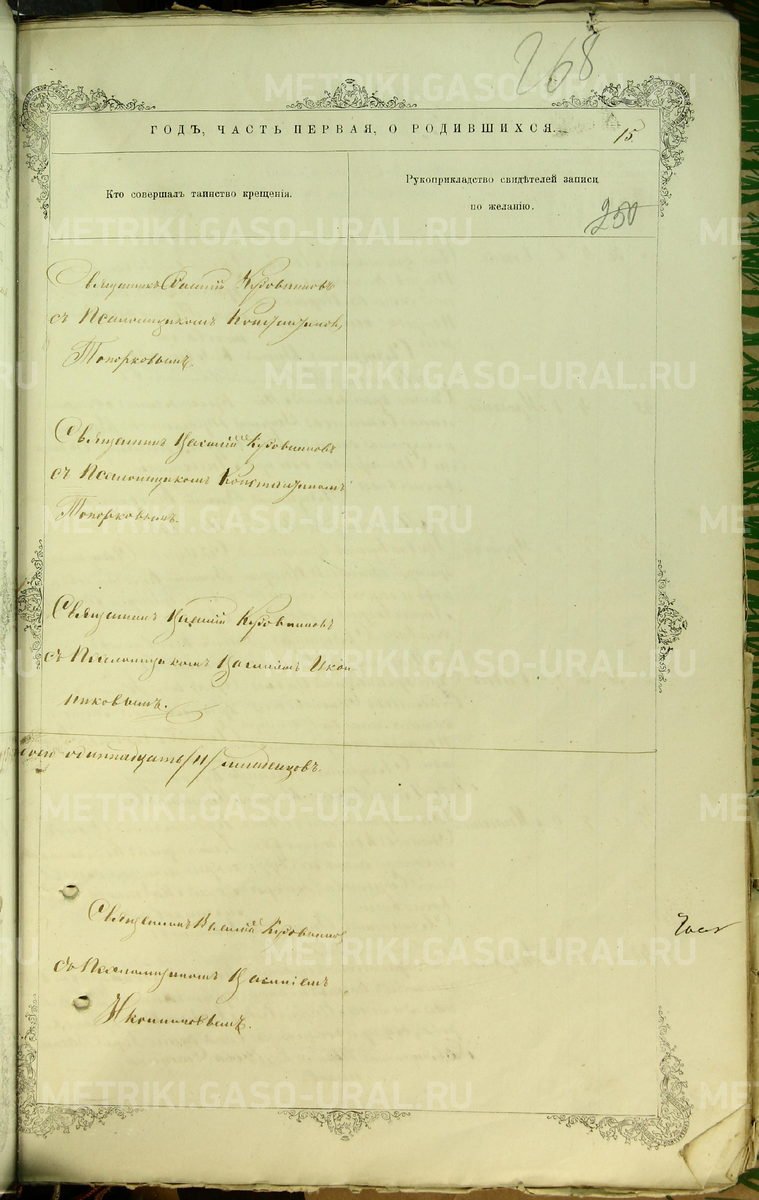 268
ГОДЪ, ЧАСТЬ ПЕРВАЯ, О РОДИВШИХСЯ.
15.
Кто совершалъ таинство крещенія.
Рукоприкладство свидѣтелей записи
по желанію.
250
Священникъ Василій Кудовинновъ
съ Псаломщикомъ Константиномъ
Топорковымъ.
Священникъ Василій Кудовинновъ
съ Псаломщикомъ Константиномъ
Топорковымъ.
Священникъ Василій Кудовинновъ
съ Псаломщикомъ Василіемъ Икон
никовымъ.
одиннадцать /11/ младенцовъ.
Священникъ Василій Кудовинновъ
съ Псаломщикомъ Василіемъ
Иконниковымъ.
METRIKI.GASO-URAL.RU